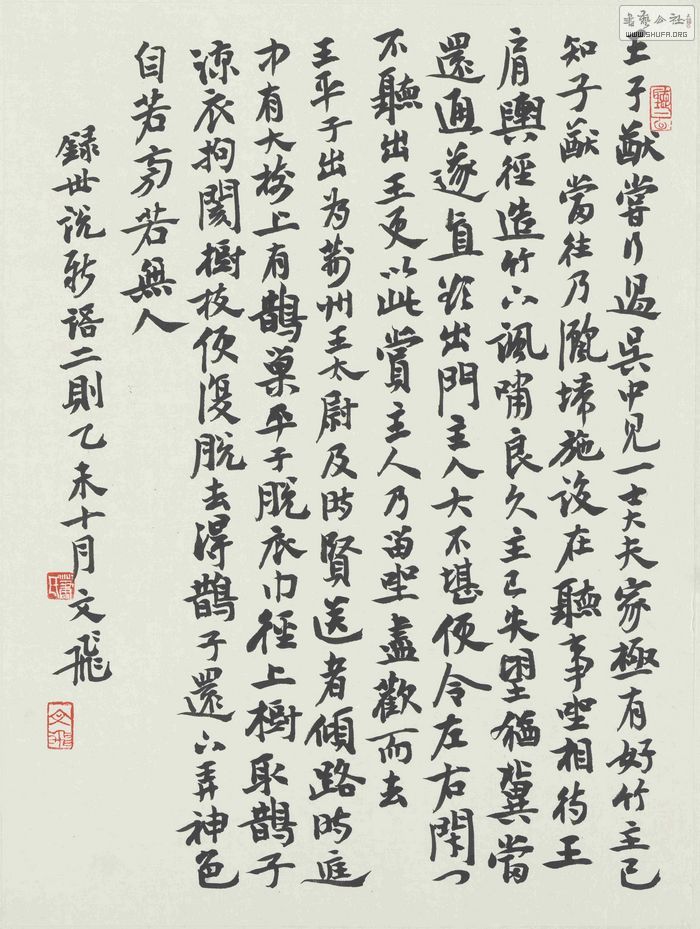 王子猷嘗行過吳中见一士大夫家極有好竹主已
知子猷當往乃灑埽施设在聽事坐相待王
肩輿徑造竹下諷嘯良久主已失望猶冀當
還通遂直欲出門主人大不堪便令左右閉门
不聽出王更以此賞主人乃留坐盡歡而去
王平子出为荊州王太尉及时賢送者傾路时庭
中有大樹上有鵲巢平子脫衣巾徑上樹取鵲子
涼衣拘閡樹枝便復脫去得鵲子還下弄神色
自若旁若無人
録世说新语二則乙未十月文飛
文飛
WWW.SHUFA.ORG